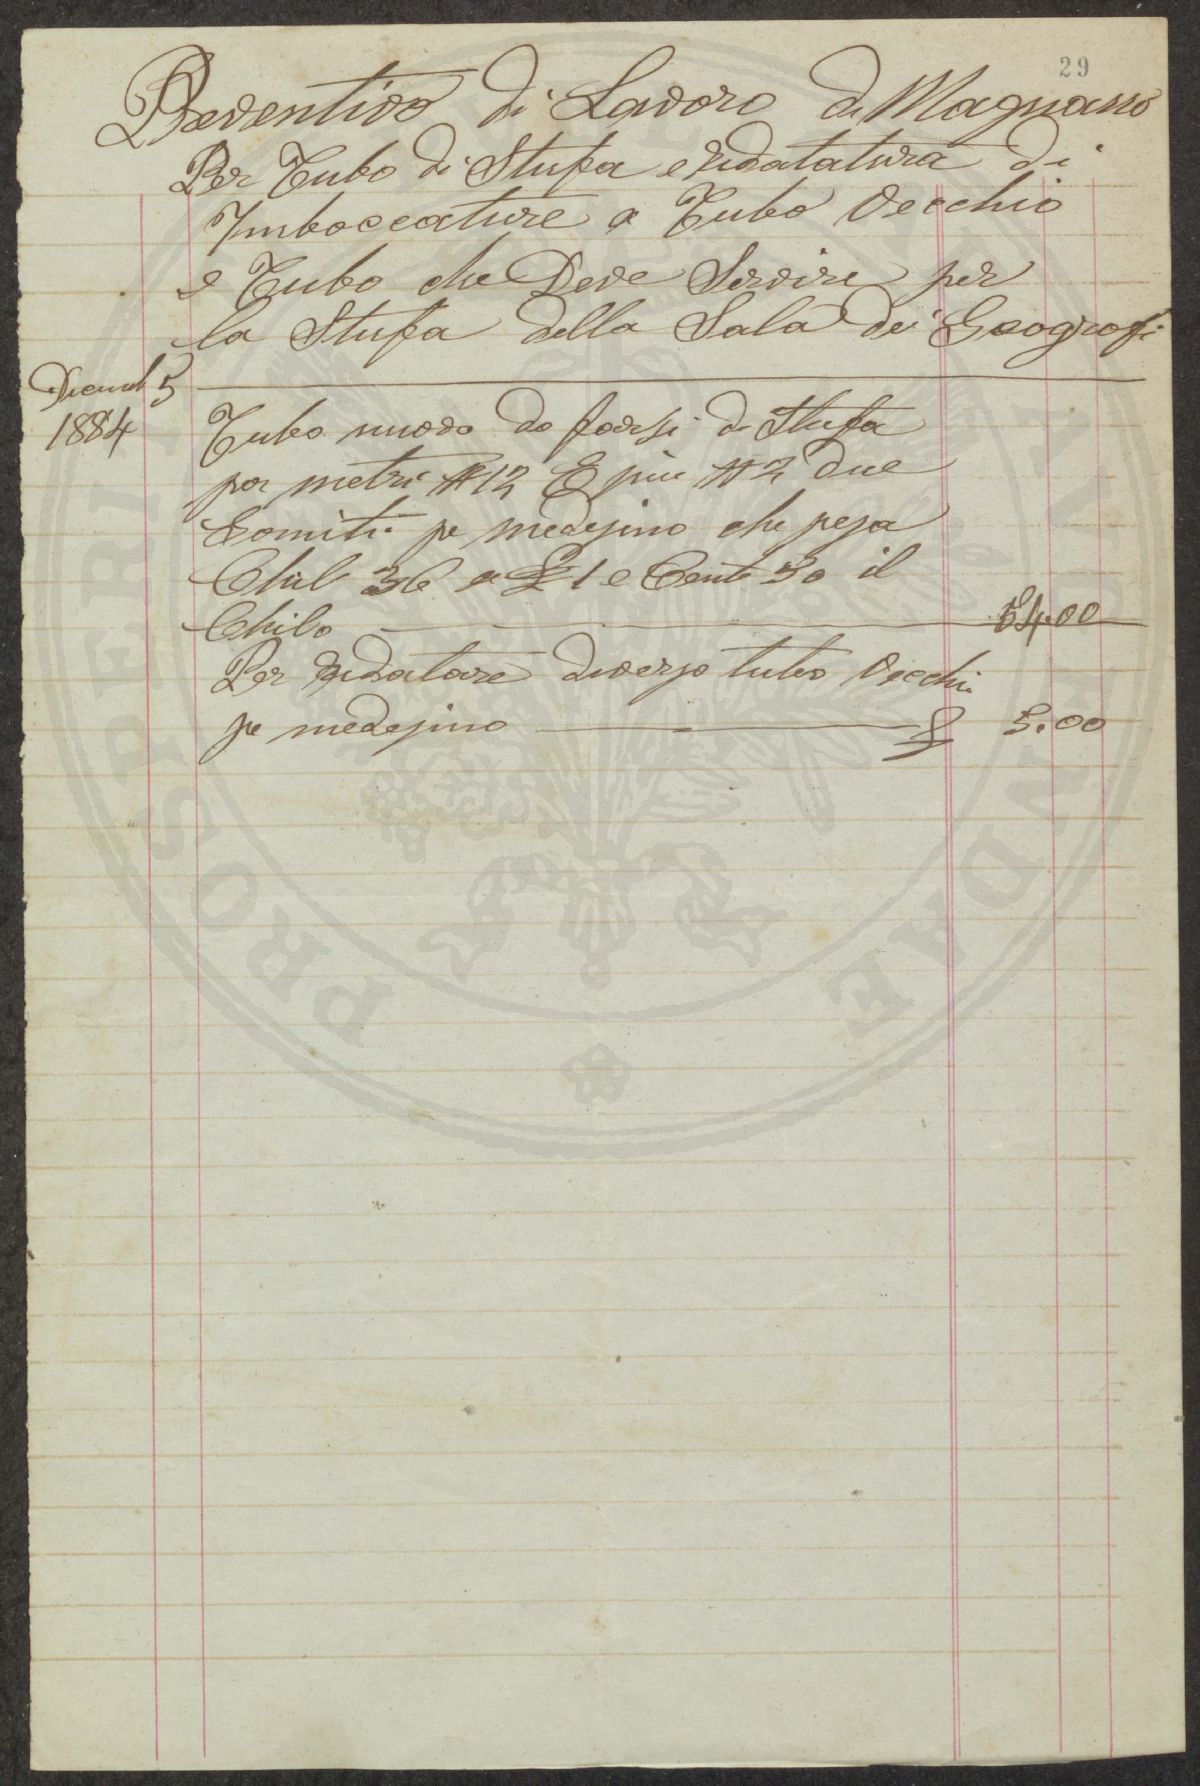 29
Preventivo di Lavoro di Magnasso
Per Tubo di Stufa e ridatatura di
Imboccature a Tubo Vecchio
e Tubo che Deve Servire per
la Stufa della Sala dei Geografi
Dicemb 5
1884
Tubo nuovo da farsi di Stufa
per metri #12 E piu #2 due
Gomiti pe medesimo che pesa
Chil 36 a £ 1 e Cent 50 il
Chilo 54.00
Per ridatare diverso tubo Vecchi
pe medesimo £ 5.00
PROSPERITATI